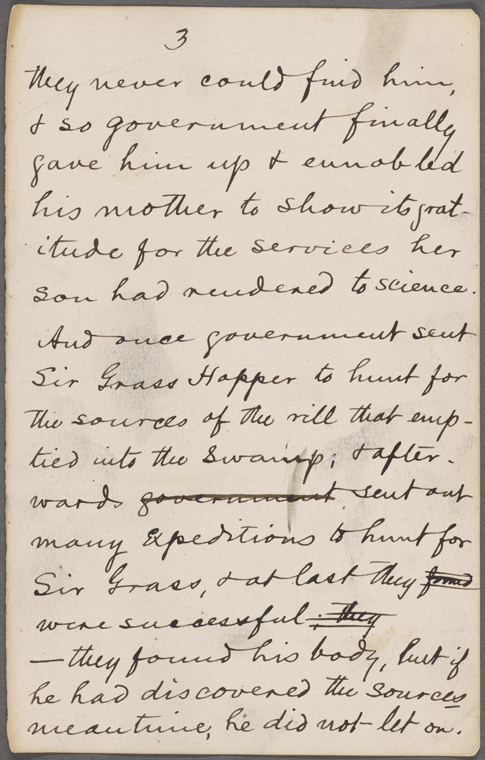 3
they never could find him,
& so government finally
gave him up & ennobled
his mother to show its grat-
itude for the services her
son had rendered to science.
And once government sent
Sir Grass Hopper to hunt for
the sources of the rill that emp-
tied into the swamp; & after-
wards government sent out
many expeditions to hunt for
Sir Grass, & at last they found
were successful ; they
— they found his body, but if
he had discovered the sources
meantime, he did not let on.